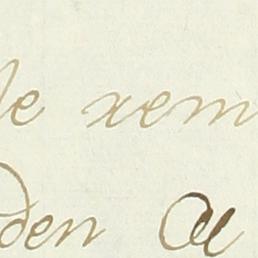 le xem
den a